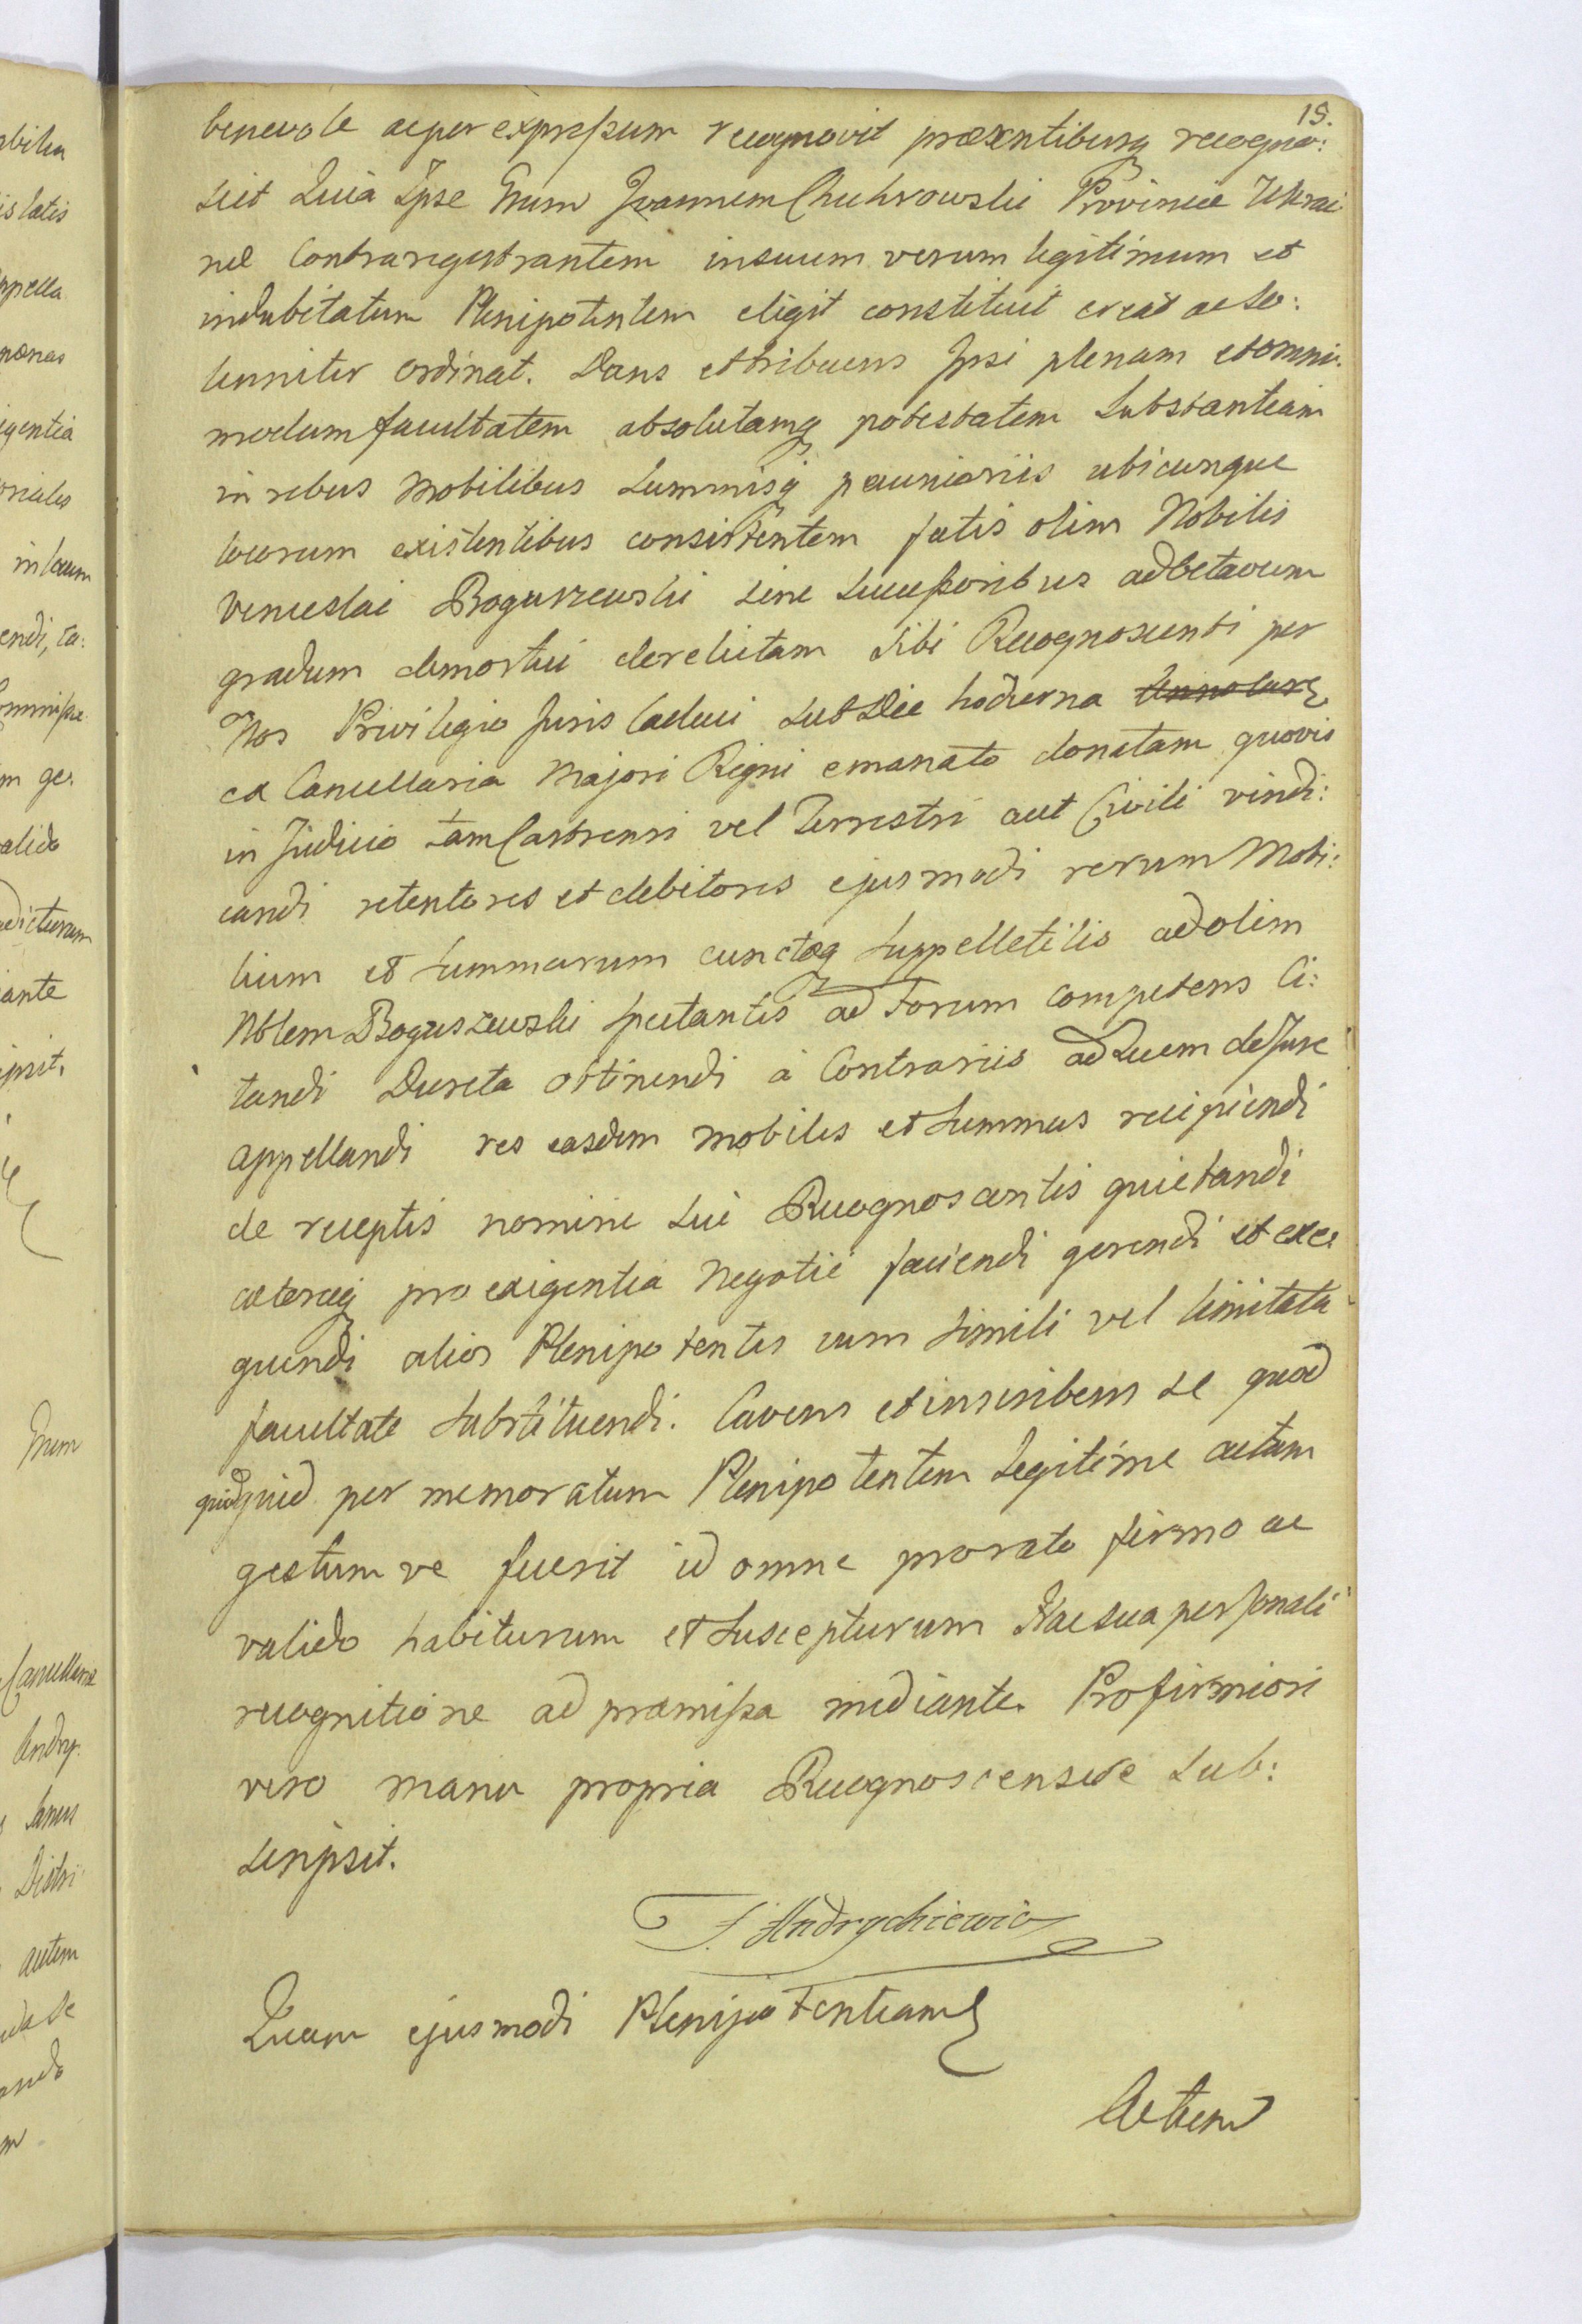 15.
benevole ac per expressum recognovit præsentibusq recogno:
scit Quia Ipse Gnum Joannem Chuhrowski Provinciæ Ukrai
næ Contraregestrantem in suum verum legitimum et
indubitatum Plenipotentem eligit constituit creat ac so:
lenniter ordinat. Dans et tribuens Ipsi plenam et omni:
modam facultatem absolutamq potestatem Substantiam
in rebus Mobilibus Summisq pecuniariis ubicunque
locorum existentibus consistentem fatis olim Nobilis
Venceslai Boguszewski sine Successoribus ad octavum
gradum demortui derelictam sibi Recognoscenti per
Nos Privilegio Juris Caduci sub Die hodierna
ex Cancellaria Majori Regni emanato donatam quovis
in Judicio tam Castrensi vel Terrestri aut Civili vindi:
candi retentores et debitores ejusmodi rerum Mobi:
lium et Summarum cunctæq Suppelletilis ad olim
Nblem Boguszewski spectantis ad Forum competens Ci:
tandi Decreta obtinendi a Contrariis ad Quem de Jure
appellandi res easdem mobiles et Summas recipiendi
de receptis nomine sui Recognoscentis quietandi
cæteraq pro exigentia Negotii faciendi gerendi et exe:
quendi alios Plenipotentes cum simili vel limitata
facultate substituendi. Cavens et inscribens se quod
quidquid per memoratum Plenipotentem Legitime actum
gestum ve fuerit id omne pro rato firmo ac
valido habiturum et suscepturum Hac sua personali
recognitione ad præmissa mediante. Pro firmiori
vero manu propria Recognoscens se sub:
scripsit.
F. Andrychiewicz
Quam ejusmodi Plenipotentiam
Actem
abilia
is latis
appella
pænas
igentia
oriales
in locum
endi, ta:
m ge:
alido
adicturum
iante
ipsit.
Gnum
Cancellariæ
Andry:
Distri
autem